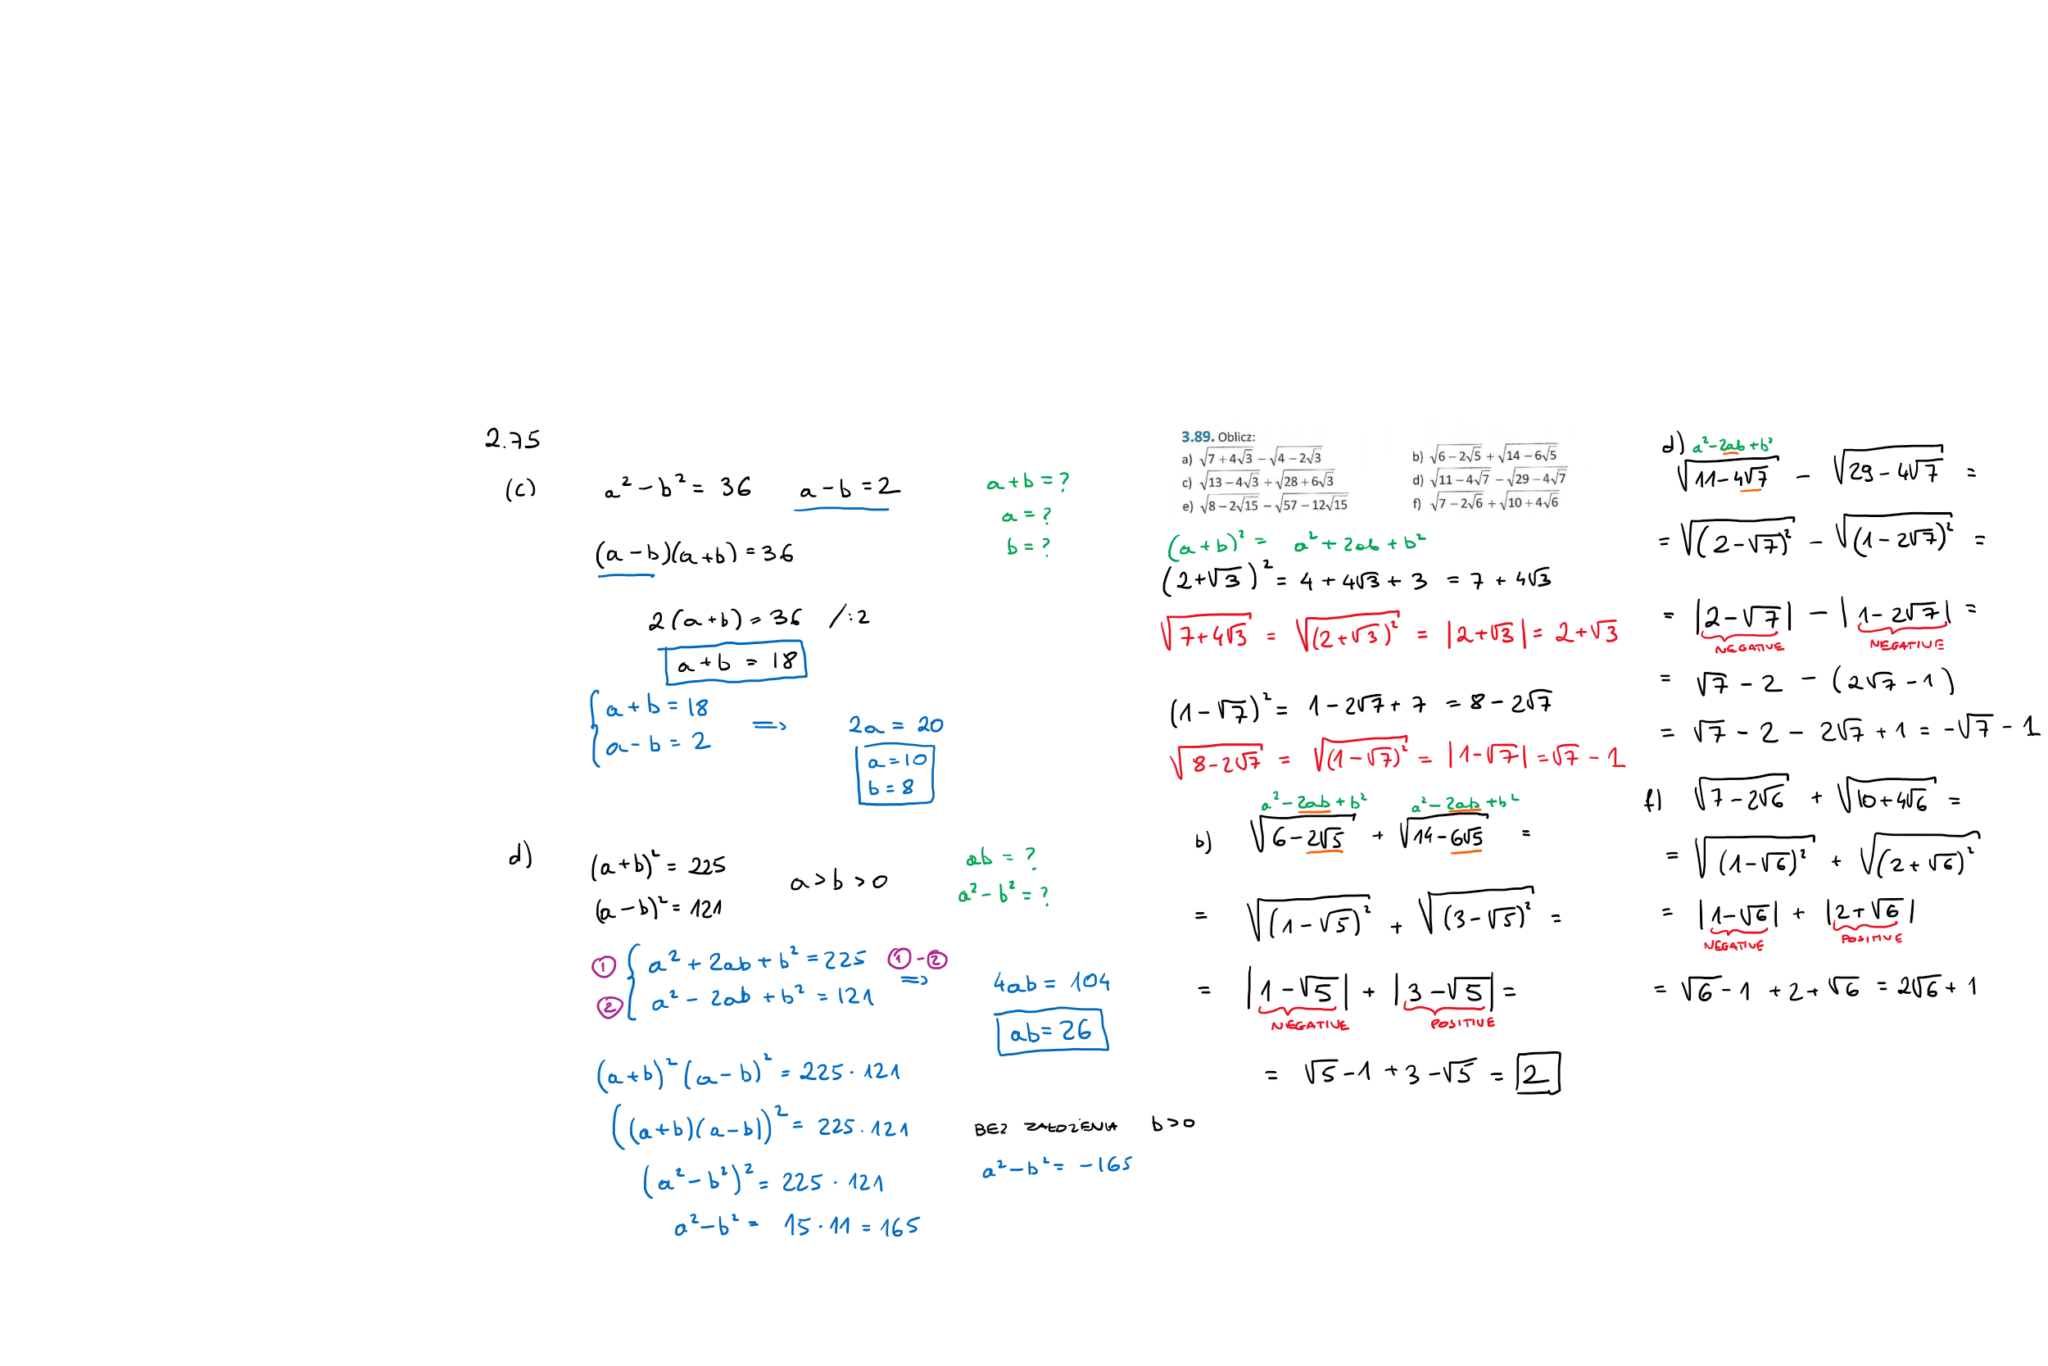 2.75
(c) a² − b² = 36 a − b = 2 a + b = ?
a = ?
b = ?
(a − b)(a + b) = 36
2(a + b) = 36 /:2
a + b = 18
a + b = 18
a − b = 2 => 2a = 20
a = 10
b = 8
d) (a + b)² = 225 a > b > 0 ab = ?
(a − b)² = 121 a² − b² = ?
① a² + 2ab + b² = 225 ① − ②
② a² − 2ab + b² = 121 => 4ab = 104
ab = 26
(a + b)² (a − b)² = 225 · 121
((a + b)(a − b))² = 225 · 121 BEZ ZAŁOŻENIA b > 0
(a² − b²)² = 225 · 121 a² − b² = −165
a² − b² = 15 · 11 = 165
3.89. Oblicz:
a) √(7 + 4√3) − √(4 − 2√3) b) √(6 − 2√5) + √(14 − 6√5)
c) √(13 − 4√3) + √(28 + 6√3) d) √(11 − 4√7) − √(29 − 4√7)
e) √(8 − 2√15) − √(57 − 12√15) f) √(7 − 2√6) + √(10 + 4√6)
(a + b)² = a² + 2ab + b²
(2 + √3)² = 4 + 4√3 + 3 = 7 + 4√3
√(7 + 4√3) = √((2 + √3)²) = |2 + √3| = 2 + √3
(1 − √7)² = 1 − 2√7 + 7 = 8 − 2√7
√(8 − 2√7) = √((1 − √7)²) = |1 − √7| = √7 − 1
a² − 2ab + b² a² − 2ab + b²
b) √(6 − 2√5) + √(14 − 6√5) =
= √((1 − √5)²) + √((3 − √5)²) =
= |1 − √5| + |3 − √5| =
NEGATIVE POSITIVE
= √5 − 1 + 3 − √5 = 2
d) a² − 2ab + b²
√(11 − 4√7) − √(29 − 4√7) =
= √((2 − √7)²) − √((1 − 2√7)²) =
= |2 − √7| − |1 − 2√7| =
NEGATIVE NEGATIVE
= √7 − 2 − (2√7 − 1)
= √7 − 2 − 2√7 + 1 = −√7 − 1
f) √(7 − 2√6) + √(10 + 4√6) =
= √((1 − √6)²) + √((2 + √6)²)
= |1 − √6| + |2 + √6|
NEGATIVE POSITIVE
= √6 − 1 + 2 + √6 = 2√6 + 1